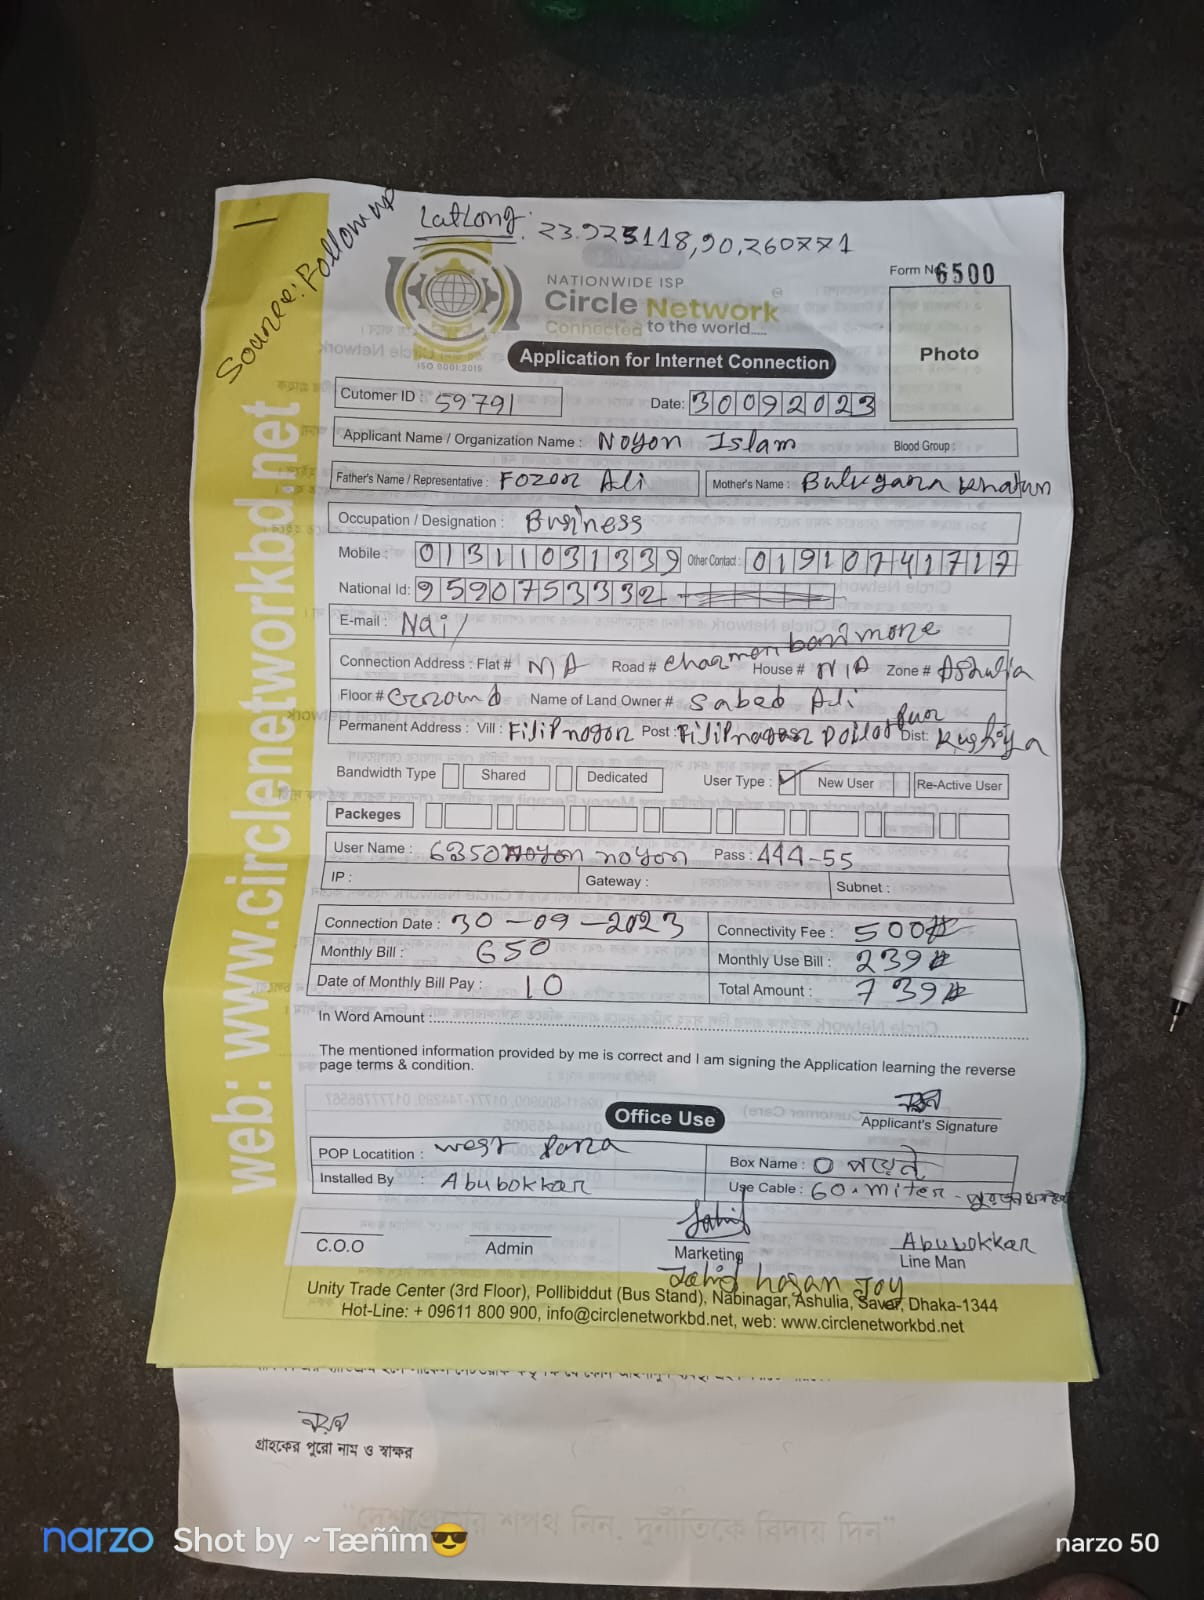 LatLong: 23.925118,90,260771
Source: Follow up
NATIONWIDE ISP
Circle Network
Connected to the world.....
ISO 9001:2015
Form No 6500
Photo
Application for Internet Connection
Cutomer ID : 59791 Date: 30092023
Applicant Name / Organization Name : Noyon Islam Blood Group :
Father's Name / Representative : Fozor Ali Mother's Name : khatun
Occupation / Designation : Business
Mobile : 01311031339 Other Contact : 01910741717
National Id: 9590753332
E-mail : Nai/
Connection Address : Flat # N/A Road # charmon barir more House # N/A Zone # Ashulia
Floor # Ground Name of Land Owner # Sabed Ali
Permanent Address : Vill : Filipnogor Post : Filipnagar Doilotpur Dist: Kushtya
Bandwidth Type Shared Dedicated User Type : ✓ New User Re-Active User
Packeges
User Name : 6350 noyon Pass : 444-55
IP : Gateway : Subnet :
Connection Date : 30-09-2023 Connectivity Fee : 500
Monthly Bill : 650 Monthly Use Bill : 239
Date of Monthly Bill Pay : 10 Total Amount : 739
In Word Amount :
The mentioned information provided by me is correct and I am signing the Application learning the reverse
page terms & condition.
নয়ন
Applicant's Signature
Office Use
POP Locatition : west Para Box Name : 0 পয়েন্ট
Installed By : Abubokkar Use Cable : 60.miter -
C.O.O Admin Marketing Abubokkar
Line Man
Jahid hasan Joy
Unity Trade Center (3rd Floor), Pollibiddut (Bus Stand), Nabinagar, Ashulia, Savar, Dhaka-1344
Hot-Line: + 09611 800 900, info@circlenetworkbd.net, web: www.circlenetworkbd.net
web: www.circlenetworkbd.net
নয়ন
গ্রাহকের পুরো নাম ও স্বাক্ষর
"দেশপ্রেমের শপথ নিন, দুর্নীতিকে বিদায় দিন"
narzo Shot by ~Tæñîm😎 narzo 50